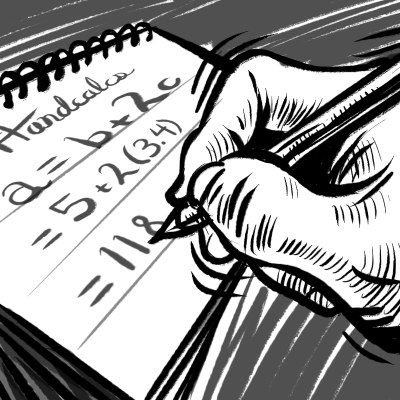 Handcalcs
a = b + 2c
= 5 + 2(3.4)
= 118